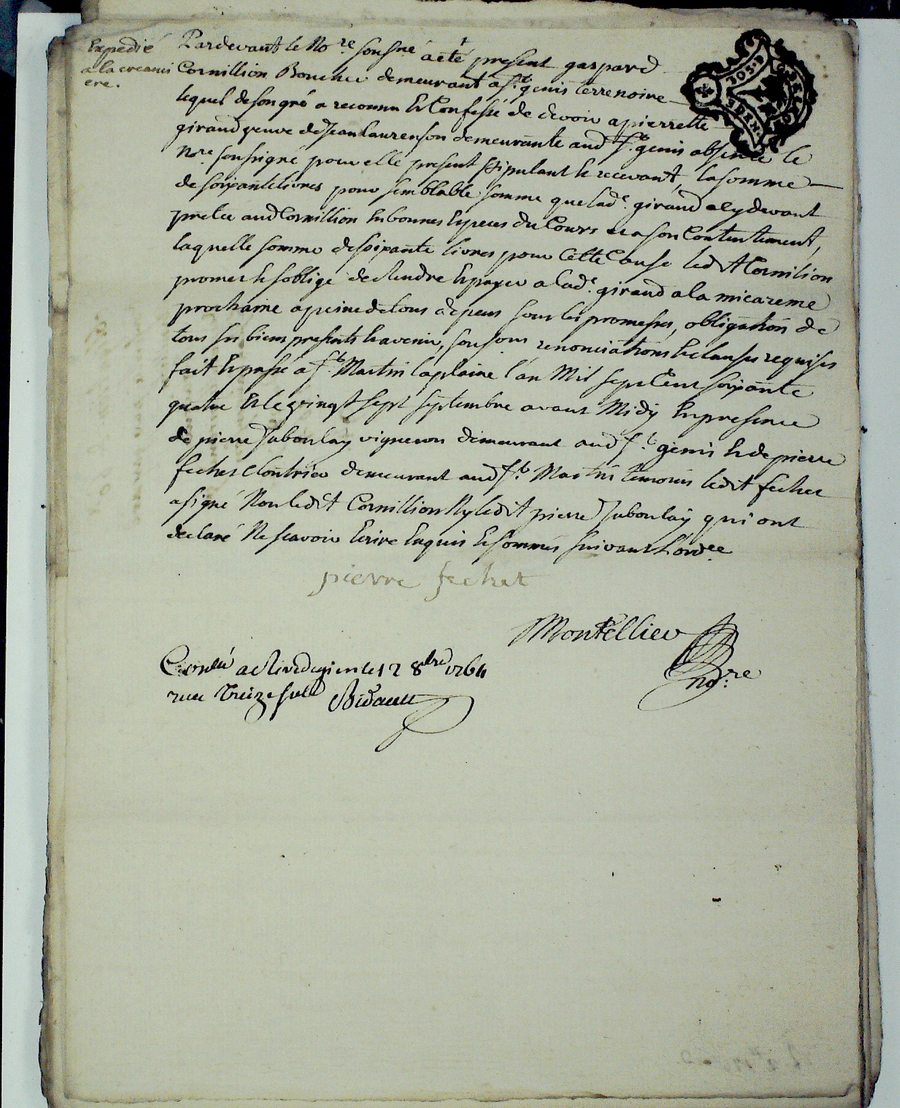 Expedié
a la creanci
ere.
Pardevant le No.re sousné a été present gaspard
Cornillion demeurant a St. genis terrenoire
lequel de son gré a reconnu et Confesse de devoir a pierrette
giraud veuve de Jean laurenson demeurante aud. St. genis absente le
No.re soussigné pour elle present stipulant et recevant, la somme
de soixante livres pour semblable somme que lad.e giraud a cy devant
pretée aud Cornillion en bonnes especes du Cours et a son Contentement,
laquelle somme de soixante livres pour cette Cause ledit Cornilion
promet et s'oblige de rendre et payer a lad.e giraud a la micareme
prochaine a peine de tous depens sous les promesses, obligation de
tous ses biens presents et avenir, renonciations et clauses requises
fait et passé a St. Martin laplaine l'an Mil sept Cent soixante
quatre et le vingt sept septembre avant Midy en presence
de pierre Jaboulay vigneron demeurant aud St. genis et de pierre
fechet Cloutrier demeurant aud St. Martin temoins ledit fechet
a signé Non ledit Cornillion Ny ledit pierre Jaboulay qui ont
declaré Ne scavoir Ecrire Enquis et sommés suivant L'ord.ce
pierre fechet
Montellier
no.re
Conlé a Rivedegier le 12 8bre 1764
recu treize sols